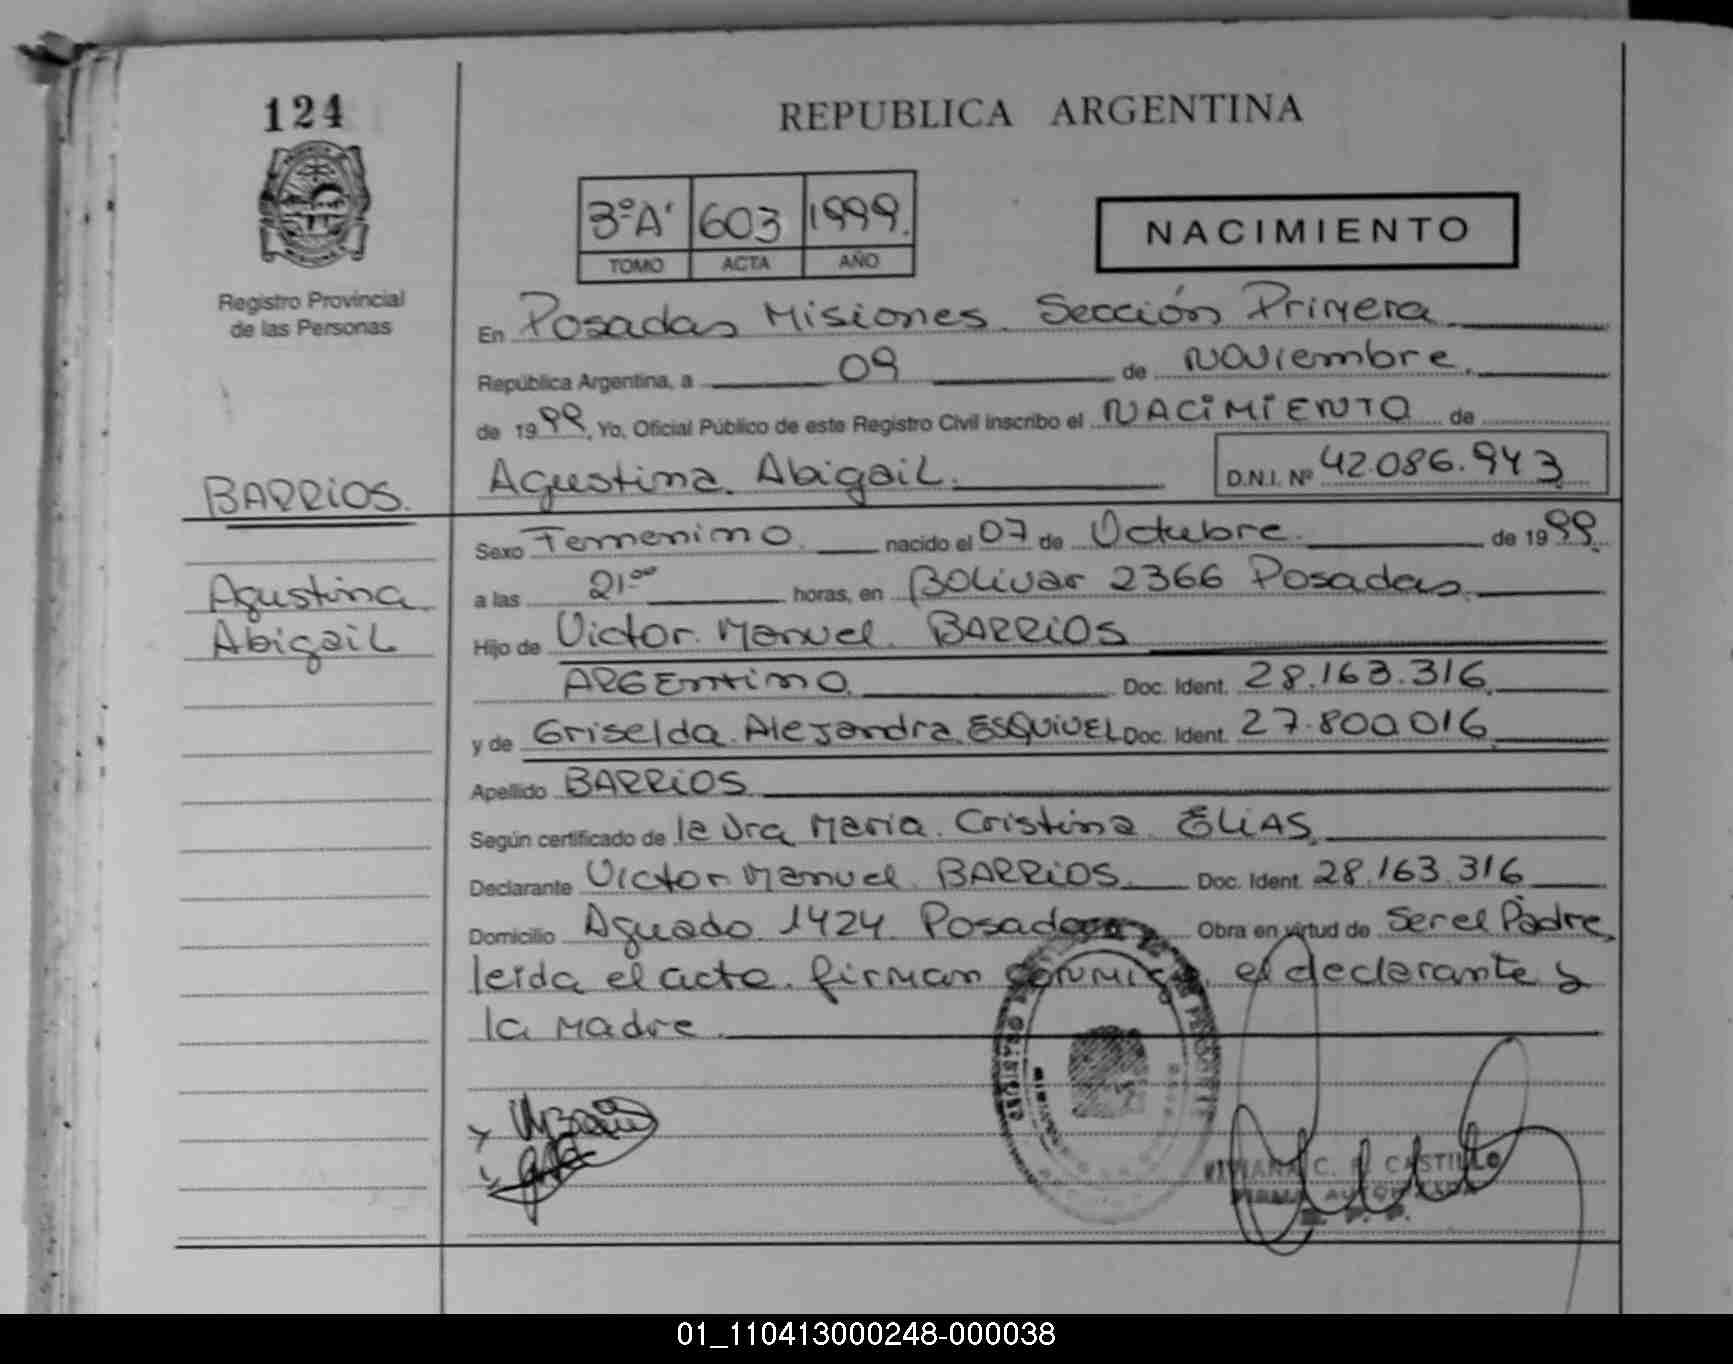 124
REPUBLICA ARGENTINA
3ºA' 603 1999.
TOMO ACTA AÑO
NACIMIENTO
Registro Provincial
de las Personas
En Posadas Misiones. Sección Primera
República Argentina, a 09 de Noviembre.
de 1999, Yo, Oficial Público de este Registro Civil inscribo el NACIMIENTO de
Agustina Abigail. D.N.I. Nº 42.086.943
BARRIOS.
Agustina
Abigail
Sexo Femenino. nacido el 07 de Octubre. de 1999.
a las 21ºº horas, en Bolivar 2366 Posadas.
Hijo de Victor Manuel BARRIOS
ARGENTINO. Doc. Ident. 28.163.316
y de Griselda Alejandra ESQUIVEL Doc. Ident. 27.800.016
Apellido BARRIOS
Según certificado de la Dra Maria Cristina ELIAS.
Declarante Victor Manuel BARRIOS. Doc. Ident. 28.163.316
Domicilio Aguado 1424 Posadas Obra en virtud de ser el Padre,
leida el acta. firman conmigo, el declarante y
la madre.
VIVIANA C. CASTILLO
FIRMA AUTORIZADA
01_110413000248-000038